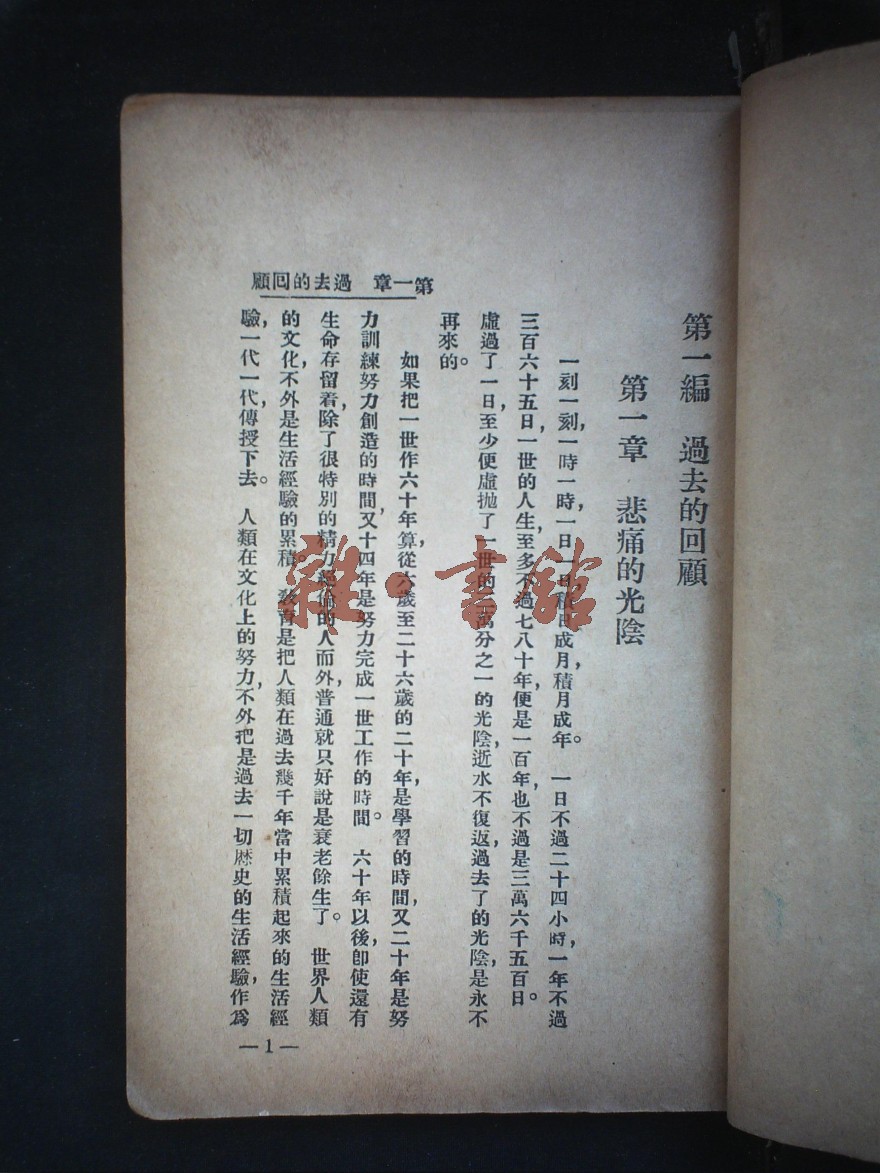 第一編　過去的回顧
第一章　悲痛的光陰
一刻一刻，一時一時，一日一日，積日成月，積月成年。一日不過二十四小時，一年不過
三百六十五日，一世的人生，至多不過七八十年，便是一百年，也不過是三萬六千五百日。
虛過了一日，至少便虛拋了一世的三萬分之一的光陰，逝水不復返，過去了的光陰，是永不
再來的。
如果把一世作六十年算，從六歲至二十六歲的二十年，是學習的時間，又二十年是努
力訓練努力創造的時間，又十四年是努力完成一世工作的時間。六十年以後，卽使還有
生命存留着，除了很特別的精力絕倫的人而外，普通就只好說是衰老餘生了。世界人類
的文化，不外是生活經驗的累積。教育是把人類在過去幾千年當中累積起來的生活經
驗，一代一代，傳授下去。人類在文化上的努力，不外把是過去一切歷史的生活經驗，作爲
第一章　過去的回顧
—1—
雜·書館